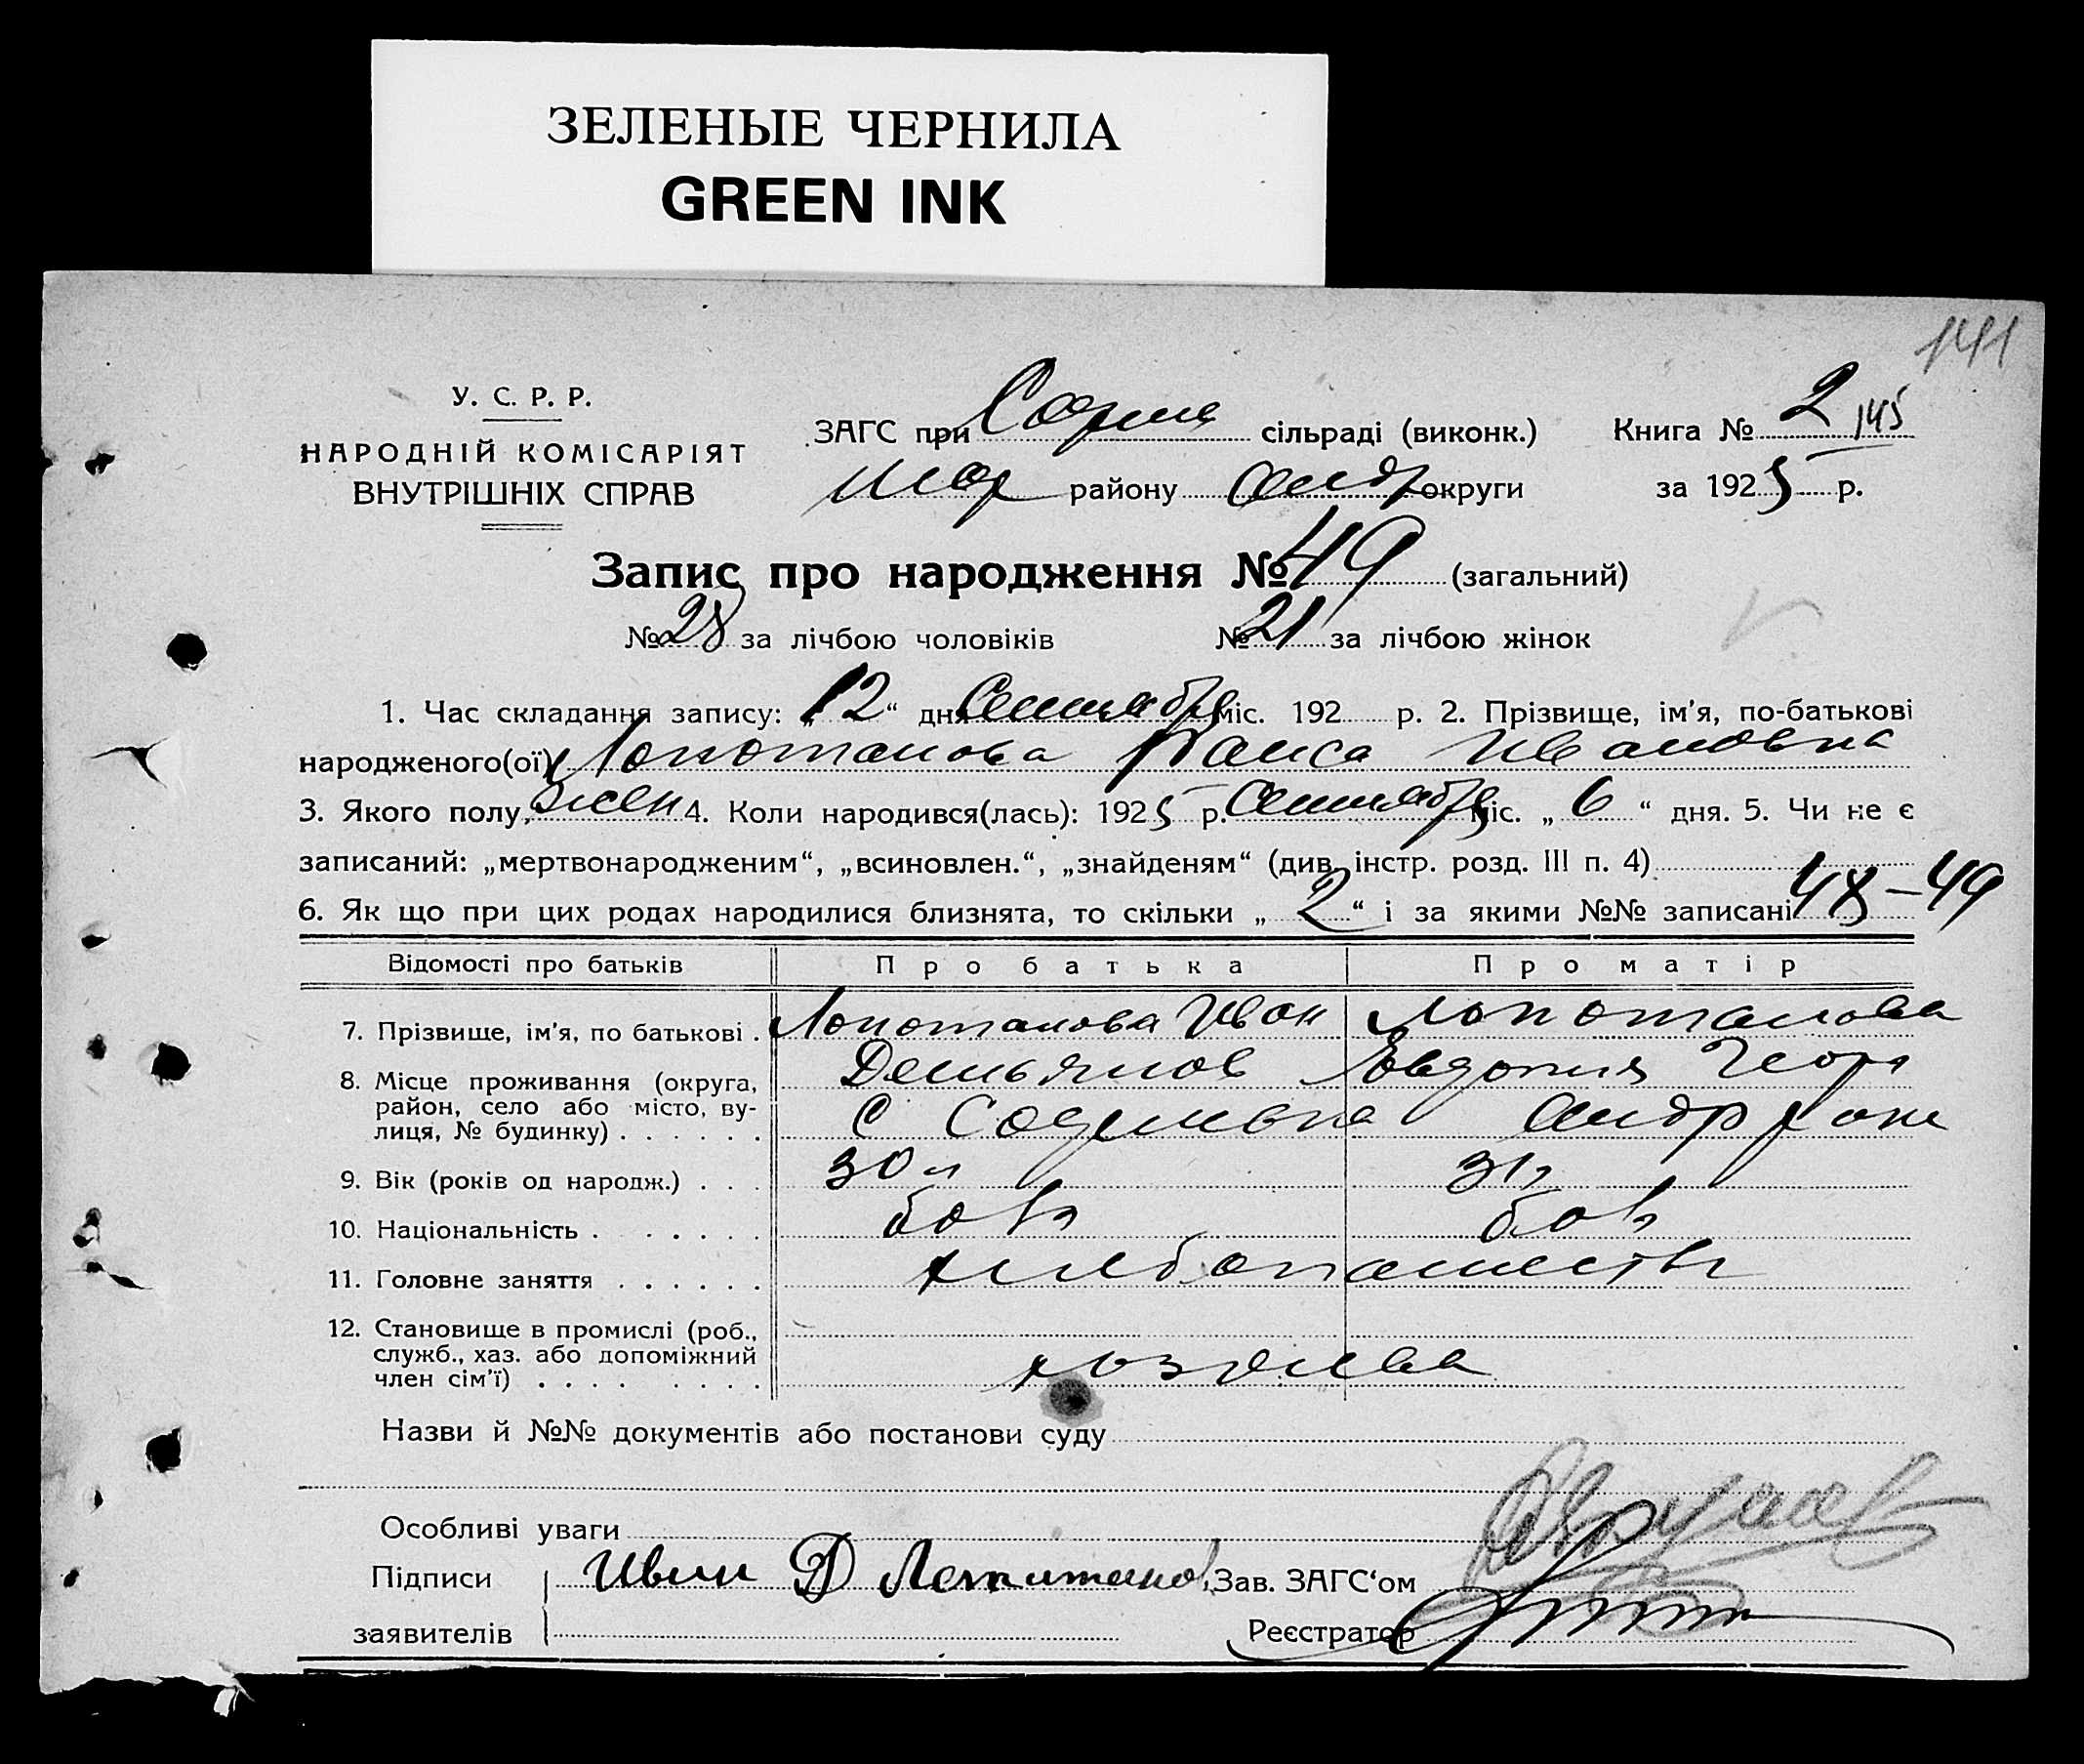 ЗЕЛЕНЫЕ ЧЕРНИЛА
GREEN INK
141
У. С. Р. Р.
НАРОДНІЙ КОМІСАРІЯТ
ВНУТРІШНІХ СПРАВ
ЗАГС при сільраді (виконк.)
району округи
Книга № 2 145
за 1925 р.
Запис про народження № 49 (загальний)
№ 28 за лічбою чоловіків № 21 за лічбою жінок
1. Час складання запису: „12“ дня Сентября міс. 192 р. 2. Прізвище, ім'я, по-батькові
народженого(ої) Лопотанова Раиса Ивановна
3. Якого полу, жен 4. Коли народився(лась): 1925 р. Сентября міс. „6“ дня. 5. Чи не є
записаний: „мертвонародженим“, „всиновлен.“, „знайденям“ (див. інстр. розд. III п. 4)
6. Як що при цих родах народилися близнята, то скільки „2“ і за якими №№ записані 48-49
Відомості про батьків Про батька Про матір
7. Прізвище, ім'я, по батькові . Лопотанова Иван Лопотанова
Демьянов Евдокия Геор
8. Місце проживання (округа,
район, село або місто, ву-
лиця, № будинку) . . . . . . с
9. Вік (років од народж.) . . . 30 л 31 л
10. Національність . . . . . . болг болг
11. Головне заняття . . . . . . хлебопашеств
12. Становище в промислі (роб.,
служб., хаз. або допоміжний
член сім'ї) . . . . . . . . хозяева
Назви й №№ документів або постанови суду
Особливі уваги
Підписи Иван Д Лопотанов Зав. ЗАГС‘ом
заявителів Реєстратор